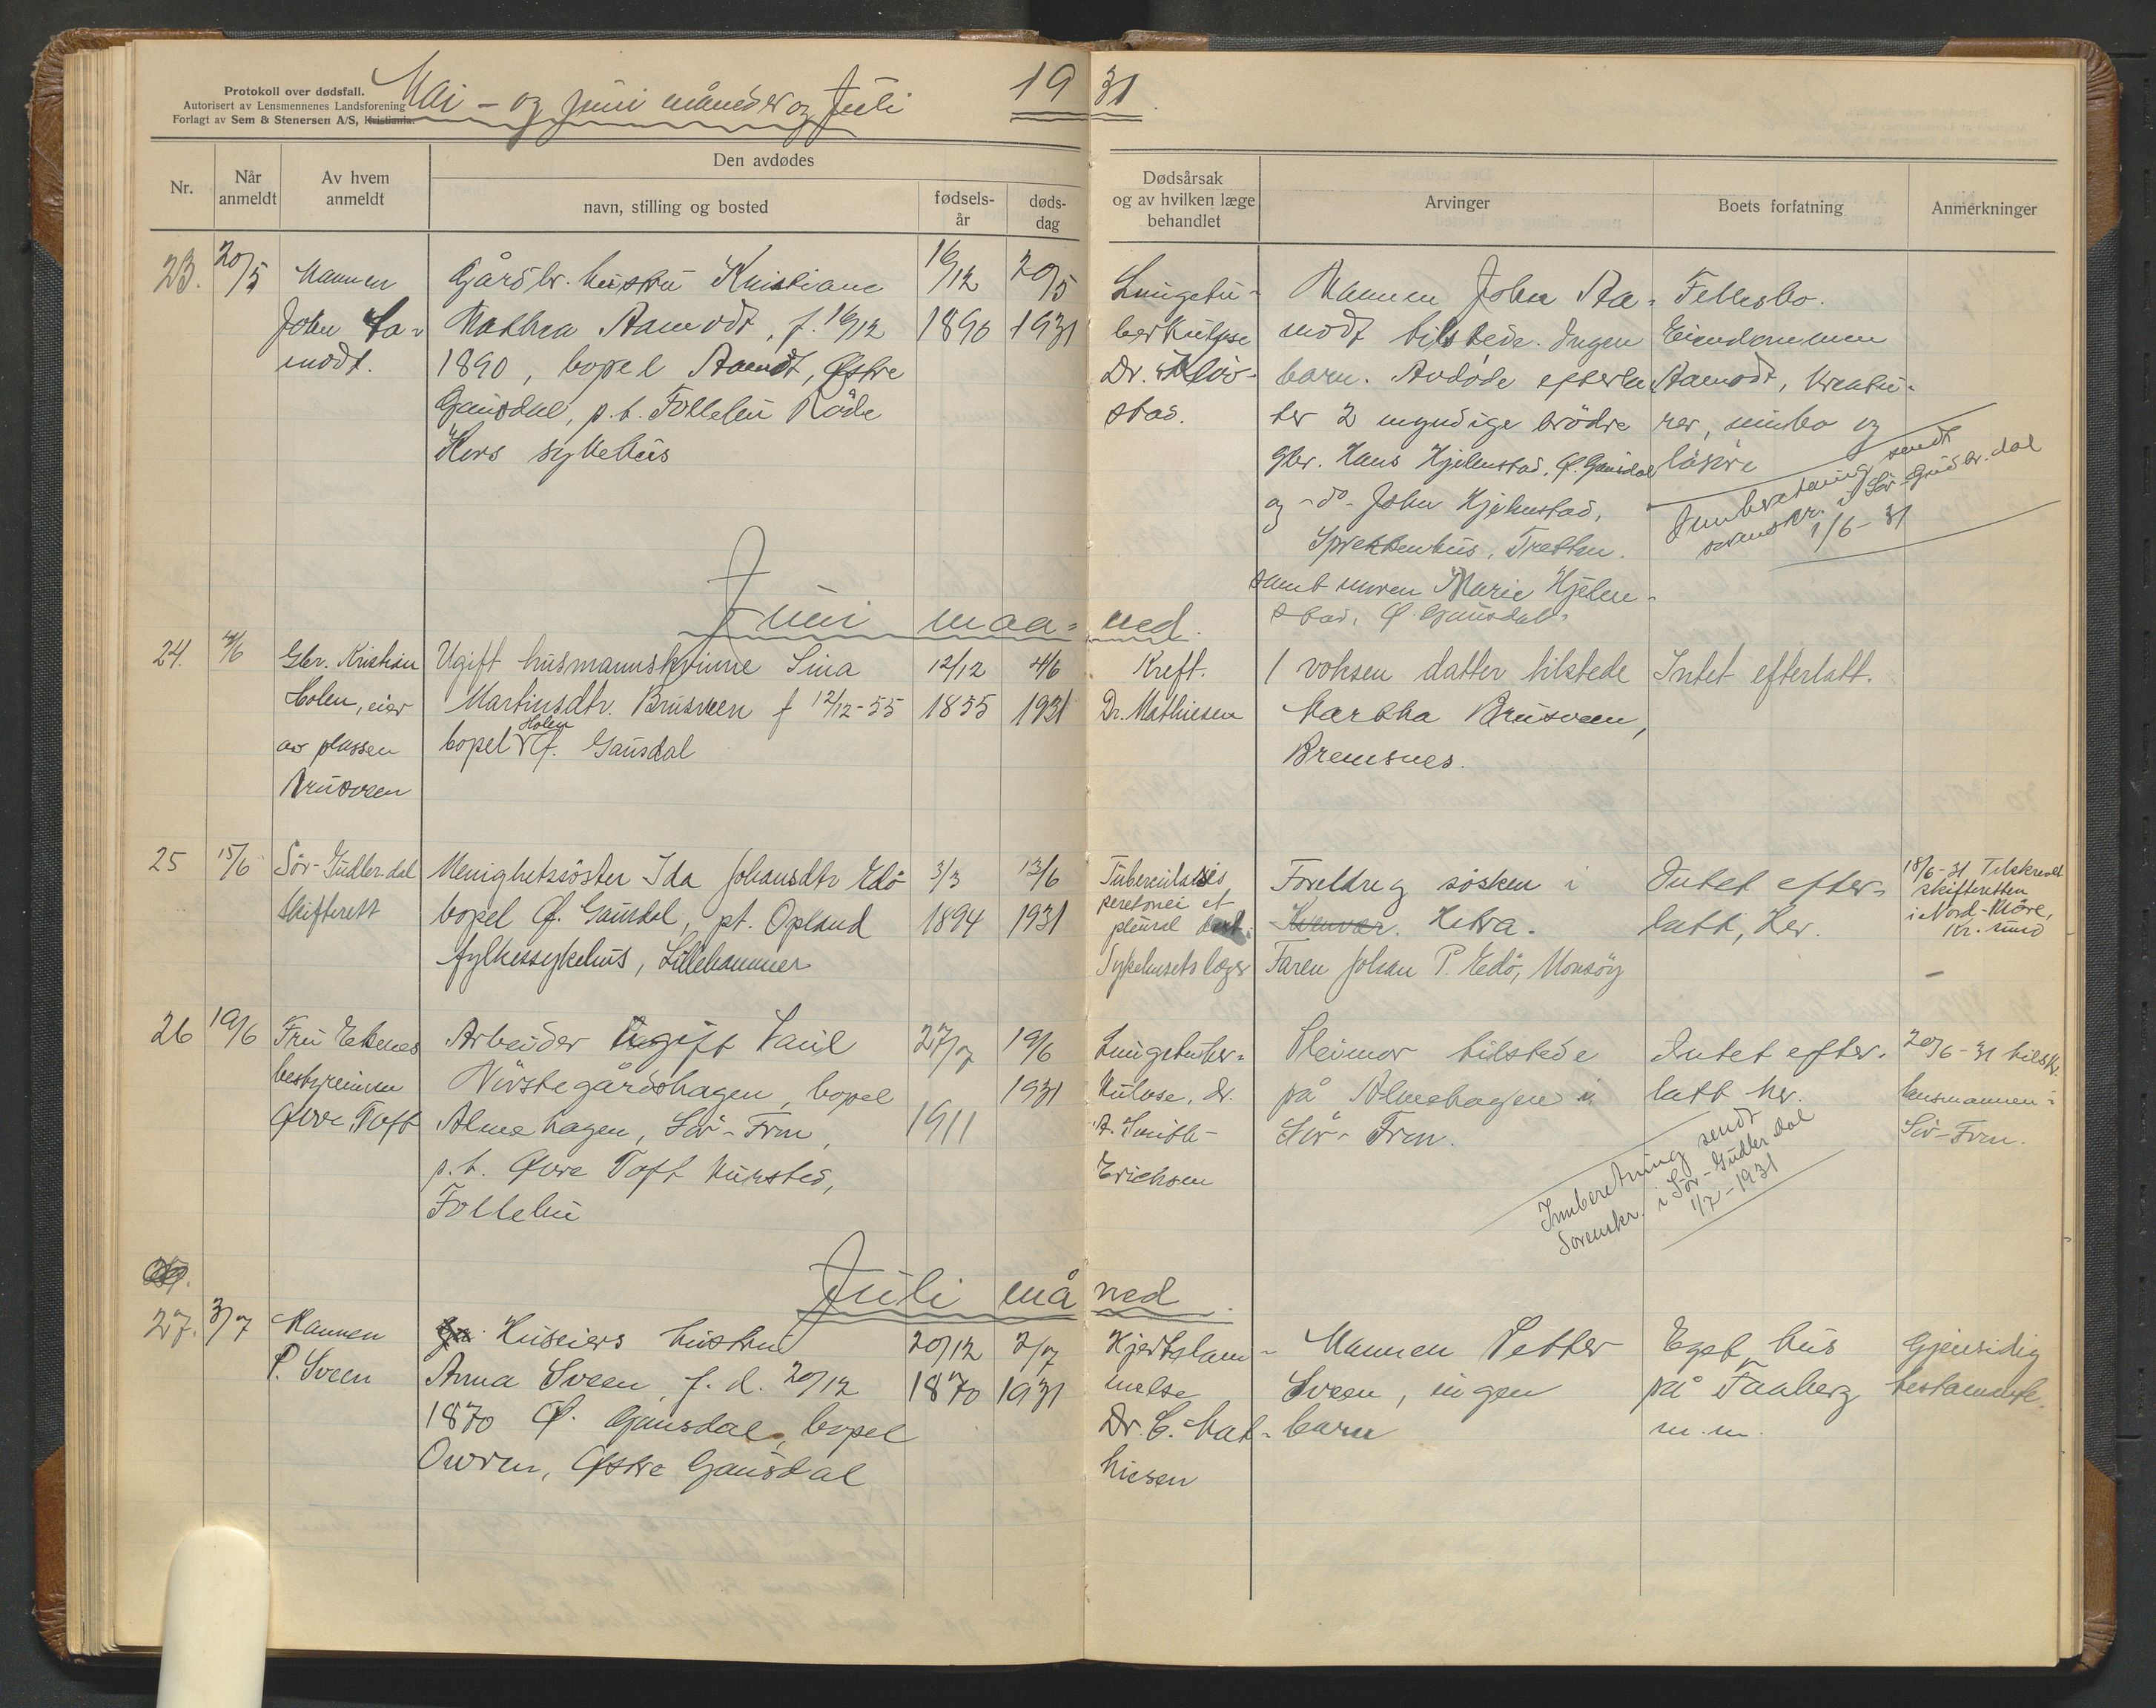 Protokoll over dødsfall.
Autorisert av Lensmennenes Landsforening
Forlagt av Sem & Stenersen A/S, Kristiania.
Mai - og juni måneder og Juli
1931.
Nr.
Når anmeldt
Av hvem anmeldt
Den avdødes
navn, stilling og bosted
fødsels-år
døds-dag
Dødsårsak og av hvilken læge behandlet
Arvinger
Boets forfatning
Anmerkninger
23.
20/5
Mannen
John Aa-
modt.
Gårdbr. hustru Kristiane
Mathea Aamodt, f. 16/12
1890, bopel Aamodt, Østre
Gausdal, p.t. Follebu Røde
Kors sykehus
16/12
1890
20/5
1931
Lungetu-
berkulose
Dr.
stad.
Mannen John Aa-
modt tilstede. Ingen
barn. Avdøde efterla-
ter 2 myndige brødre
gbr. Hans Hjelmstad, Ø. Gausdal
og -do- John Hjelmstad,
Sprekkenhus, Tretten.
samt moren Marie Hjelm-
stad, Ø. Gausdal.
Fellesbo.
Eiendommen
Aamodt, kreatu-
rer, innbo og
løsøre
Innberetning sendt
sorenskr. i Sør-Gudbr.dal
1/6-31
Juni maaned.
24.
4/6
Gbr. Kristian
Holen, eier
av plassen
Brusveen
Ugift husmannskvinne Sina
Martinsdtr. Brusveen f 12/12-55
Holen
bopel Ø. Gausdal
12/12
1855
4/6
1931
Kreft.
Dr. Mathiesen
1 voksen datter tilstede
Martha Brusveen,
Bremsnes.
Intet efterlatt.
25
15/6
Sør-Gudbr.dal
skifterett
Menighetssøster Ida Johansdtr Edø
bopel Ø. Gausdal, pt. Opland
fylkessykehus, Lillehammer
3/3
1894
13/6
1931
Tuberculosis
peretonei et
pleural dext.
Sykehusets læger
Foreldre og søsken i
Kvenvær. Hitra.
Faren Johan P. Edø, Monsøy
Intet efter-
latt, her.
18/6-31 Tilskrevet
skifteretten
i Nord-Møre,
Kr. sund
26
19/6
Fru Eknes
bestyrerinne
Øvre Toft
Arbeider Ugift Paul
Nivstegårdshagen, bopel
Almehagen, Sør-Fron,
p.t. Øvre Toft kursted,
Follebu
27/7
1911
19/6
1931
Lungetuber-
kulose, dr.
A. Smith-
Erichsen
Pleimor tilstede
på Almehagen i
Sør-Fron.
Intet efter-
latt her.
20/6-31 tilskr.
lensmannen i
Sør-Fron.
Innberetning sendt
Sorenskr. i Sør-Gudbr dal
1/7-1931
Juli måned.
27.
3/7
Mannen
P. Sveen
Huseiers hustru
Anna Sveen, f. d. 20/12
1870 Ø. Gausdal, bopel
Owren, Østre Gausdal
20/12
1870
2/7
1931
Hjertelam-
melse
Dr. C. Mat-
hiesen
Mannen Petter
Sveen, ingen
barn
Eget hus
på Faaberg
m.m.
Gjensidig
testamente.